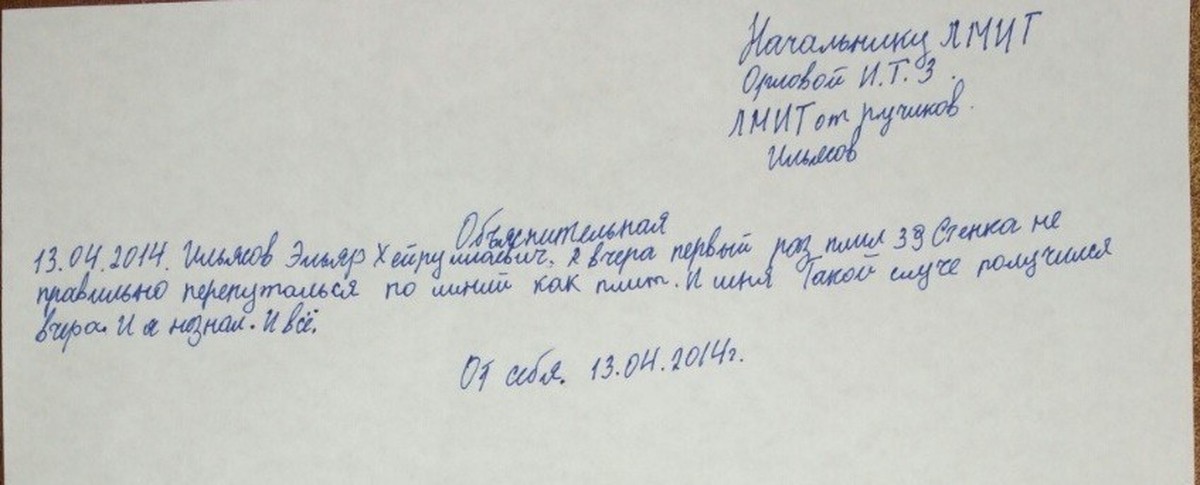 Начальнику ЛМИТ
Орловой И.Т. З.
ЛМИТ от ручиков.
Ильясов
Объяснительная
13.04.2014. Ильясов Эльяр Хейруллаевич, я вчера первый раз пилил 39 Стенка не
правильно перепуталься по линий как пилит. И меня Такой случе получился
вчера. И я нознал. И всё.
От себя. 13.04.2014г.